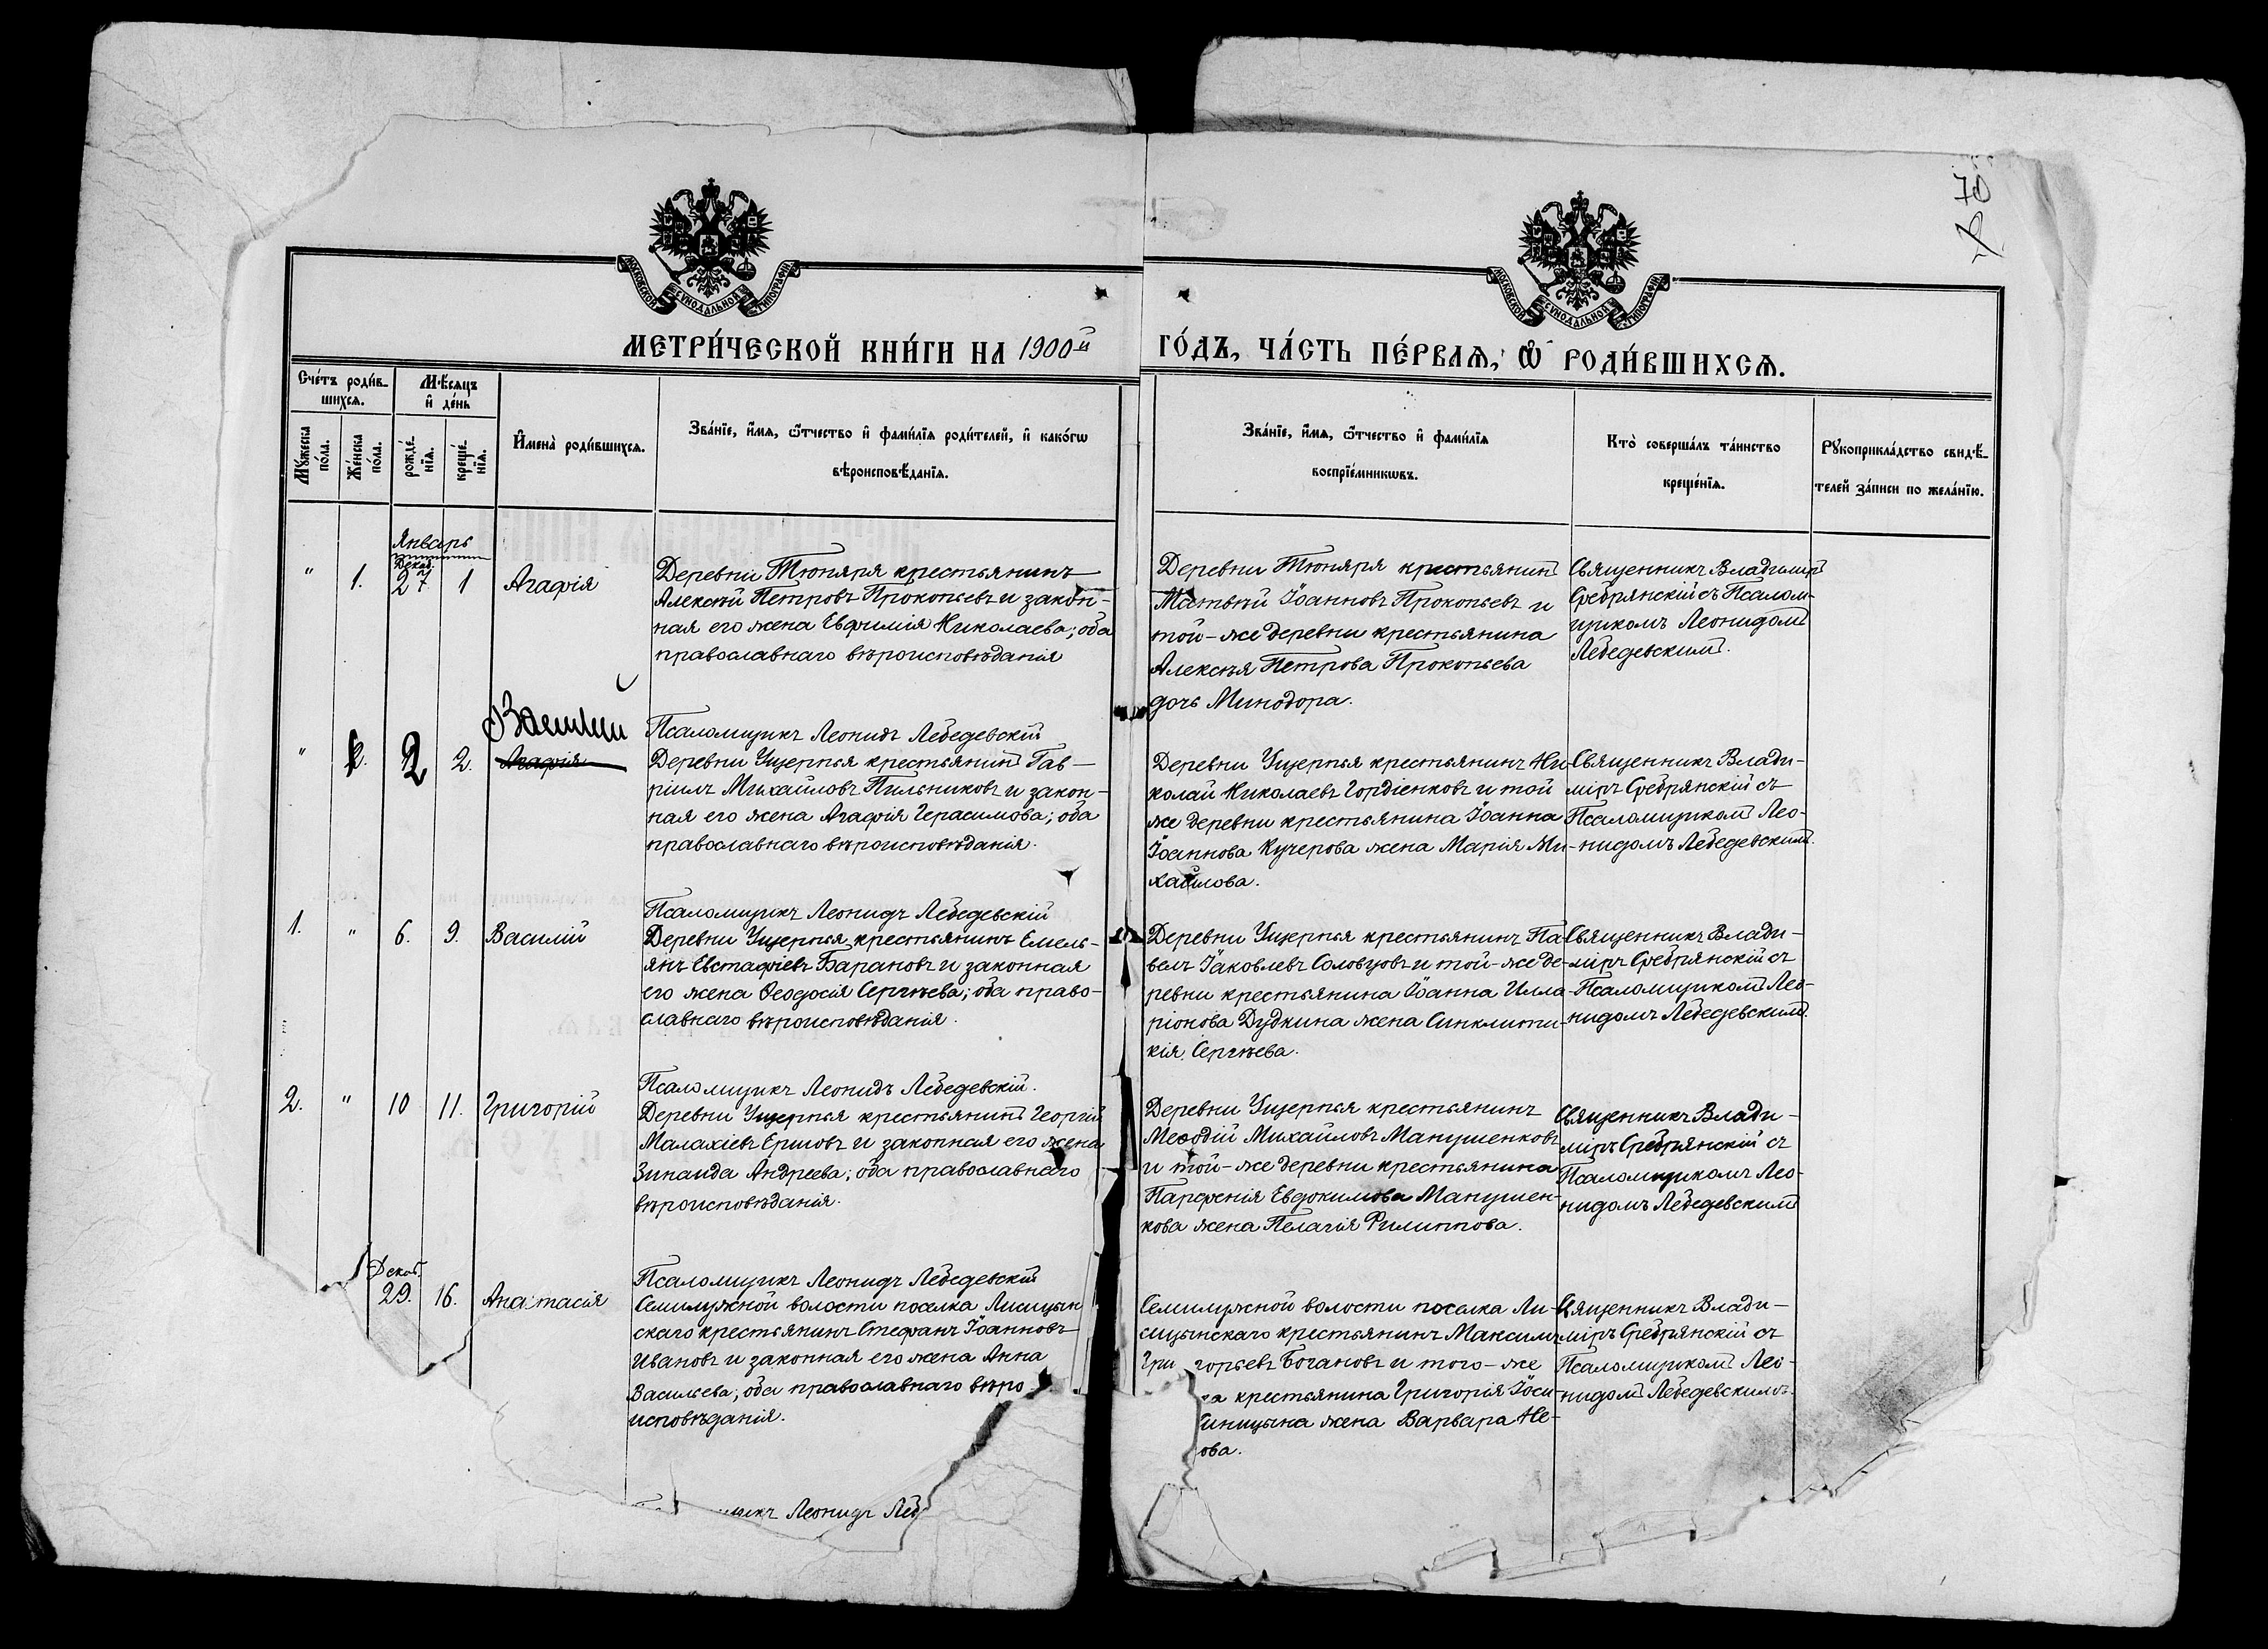 70
МОСКОВСКОЙ СѴНОДАЛЬНОЙ ТИПОГРАФІИ
МОСКОВСКОЙ СѴНОДАЛЬНОЙ ТИПОГРАФІИ
МЕТРИ́ЧЕСКОЙ КНИ́ГИ НА 1900й ГО́ДЪ, ЧА́СТЬ ПЕ́РВАѦ, Ѡ҆ РОДИ́ВШИХСѦ.
Сче́тъ роди́в-
шихсѧ.
Мѣ́сѧцъ
и҆ де́нь
Мꙋ́жеска
по́ла.
Же́нска
по́ла.
рожде́-
нїѧ.
креще́-
нїѧ.
И҆мена̀ роди́вшихсѧ.
Зва́нїе, и҆́мѧ, ѻ҆́тчество и҆ фами́лїѧ роди́телей, и҆ како́гѡ
вѣроисповѣ́данїѧ.
Зва́нїе, и҆́мѧ, ѻ҆́тчество и҆ фами́лїѧ
воспрїе́мникѡвъ.
Кто̀ соверша́лъ та́инство
креще́нїѧ.
Рꙋкоприкла́дство свидѣ́-
телей за́писи по жела́нїю.
Январь
Декаб.
" 1. 27 1 Агафія
Деревни Тюняря крестьянинъ
Алексѣй Петровъ Прокопьевъ и закон-
ная его жена Евфимія Николаева; оба
православнаго вѣроисповѣданія
Псаломщикъ Леонидъ Лебедевскій
Деревни Тюняря крестьянинъ
Матвѣй Іоанновъ Прокопьевъ и
той-же деревни крестьянина
Алексѣя Петрова Прокопьева
дочь Минодора.
Священникъ Владиміръ
Сребрянскій съ Псалом-
щикомъ Леонидомъ
Лебедевскимъ.
Василій
" 2. 2 2. Агафія
Деревни Ущерпья крестьянинъ Гав-
ріилъ Михайловъ Пильниковъ и закон-
ная его жена Агафія Герасимова; оба
православнаго вѣроисповѣданія.
Псаломщикъ Леонидъ Лебедевскій
Деревни Ущерпья крестьянинъ Ни-
колай Николаевъ Гордіенковъ и той
же деревни крестьянина Іоанна
Іоаннова Кучерова жена Марія Ми-
хайлова.
Священникъ Влади-
міръ Сребрянскій съ
Псаломщикомъ Лео-
нидомъ Лебедевскимъ.
1. " 6. 9. Василій
Деревни Ущерпья крестьянинъ Емель-
янъ Евстафіевъ Барановъ и законная
его жена Ѳеодосія Сергѣева; оба право-
славнаго вѣроисповѣданія.
Псаломщикъ Леонидъ Лебедевскій.
Деревни Ущерпья крестьянинъ Па-
велъ Іаковлевъ Соловцовъ и той-же де-
ревни крестьянина Іоанна Илла-
ріонова Дудкина жена Синклити-
кія Сергѣева.
Священникъ Влади-
міръ Сребрянскій съ
Псаломщикомъ Лео-
нидомъ Лебедевскимъ.
2. " 10 11. Григорій
Деревни Ущерпья крестьянинъ Георгій
Малахіевъ Ершовъ и законная его жена
Зинаида Андреева; оба православнаго
вѣроисповѣданія.
Псаломщикъ Леонидъ Лебедевскій
Деревни Ущерпья крестьянинъ
Меѳодій Михайловъ Манушенковъ
и той-же деревни крестьянина
Парѳенія Евдокимова Манушен-
кова жена Пелагія Филиппова.
Священникъ Влади-
міръ Сребрянскій съ
Псаломщикомъ Лео-
нидомъ Лебедевскимъ
Декаб.
29. 16. Анастасія
Семилужной волости поселка Лисицын
скаго крестьянинъ Стефанъ Іоанновъ
Ивановъ и законная его жена Анна
Васильева; оба православнаго вѣро-
исповѣданія.
щикъ Леонидъ Леб
Семилужной волости поселка Ли-
сицынскаго крестьянинъ Максимъ
Григорьевъ Богановъ и того-же
ка крестьянина Григорія Іоси-
иницына жена Варвара Не-
ова.
Священникъ Влади-
міръ Сребрянскій съ
Псаломщикомъ Лео-
нидомъ Лебедевскимъ.